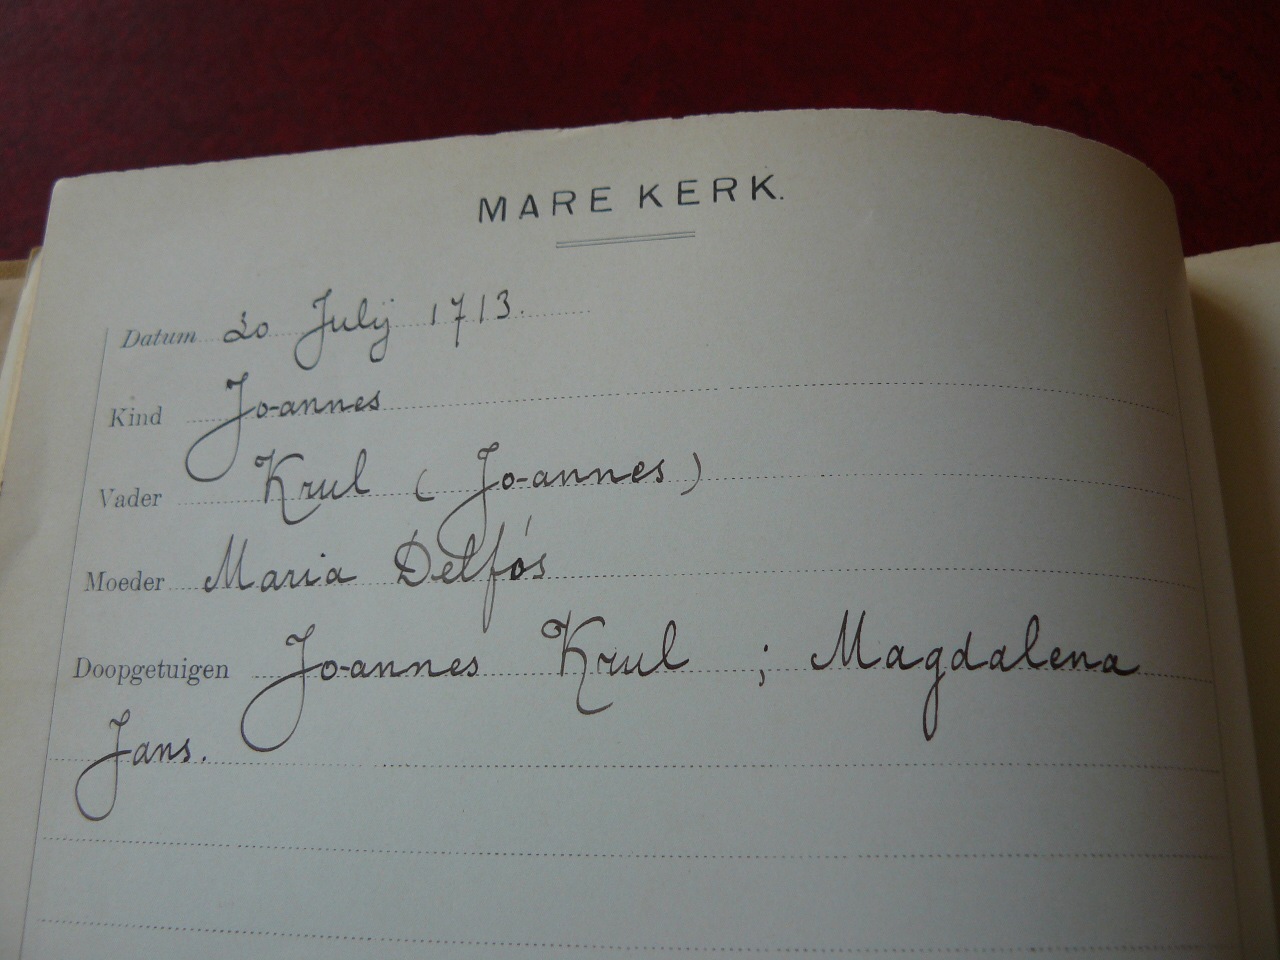 MARE KERK.
Datum 20 Julÿ 1713.
Kind Joannes
Vader Krul (Joannes)
Moeder Maria Delfós
Doopgetuigen Joannes Krul ; Magdalena
Jans.